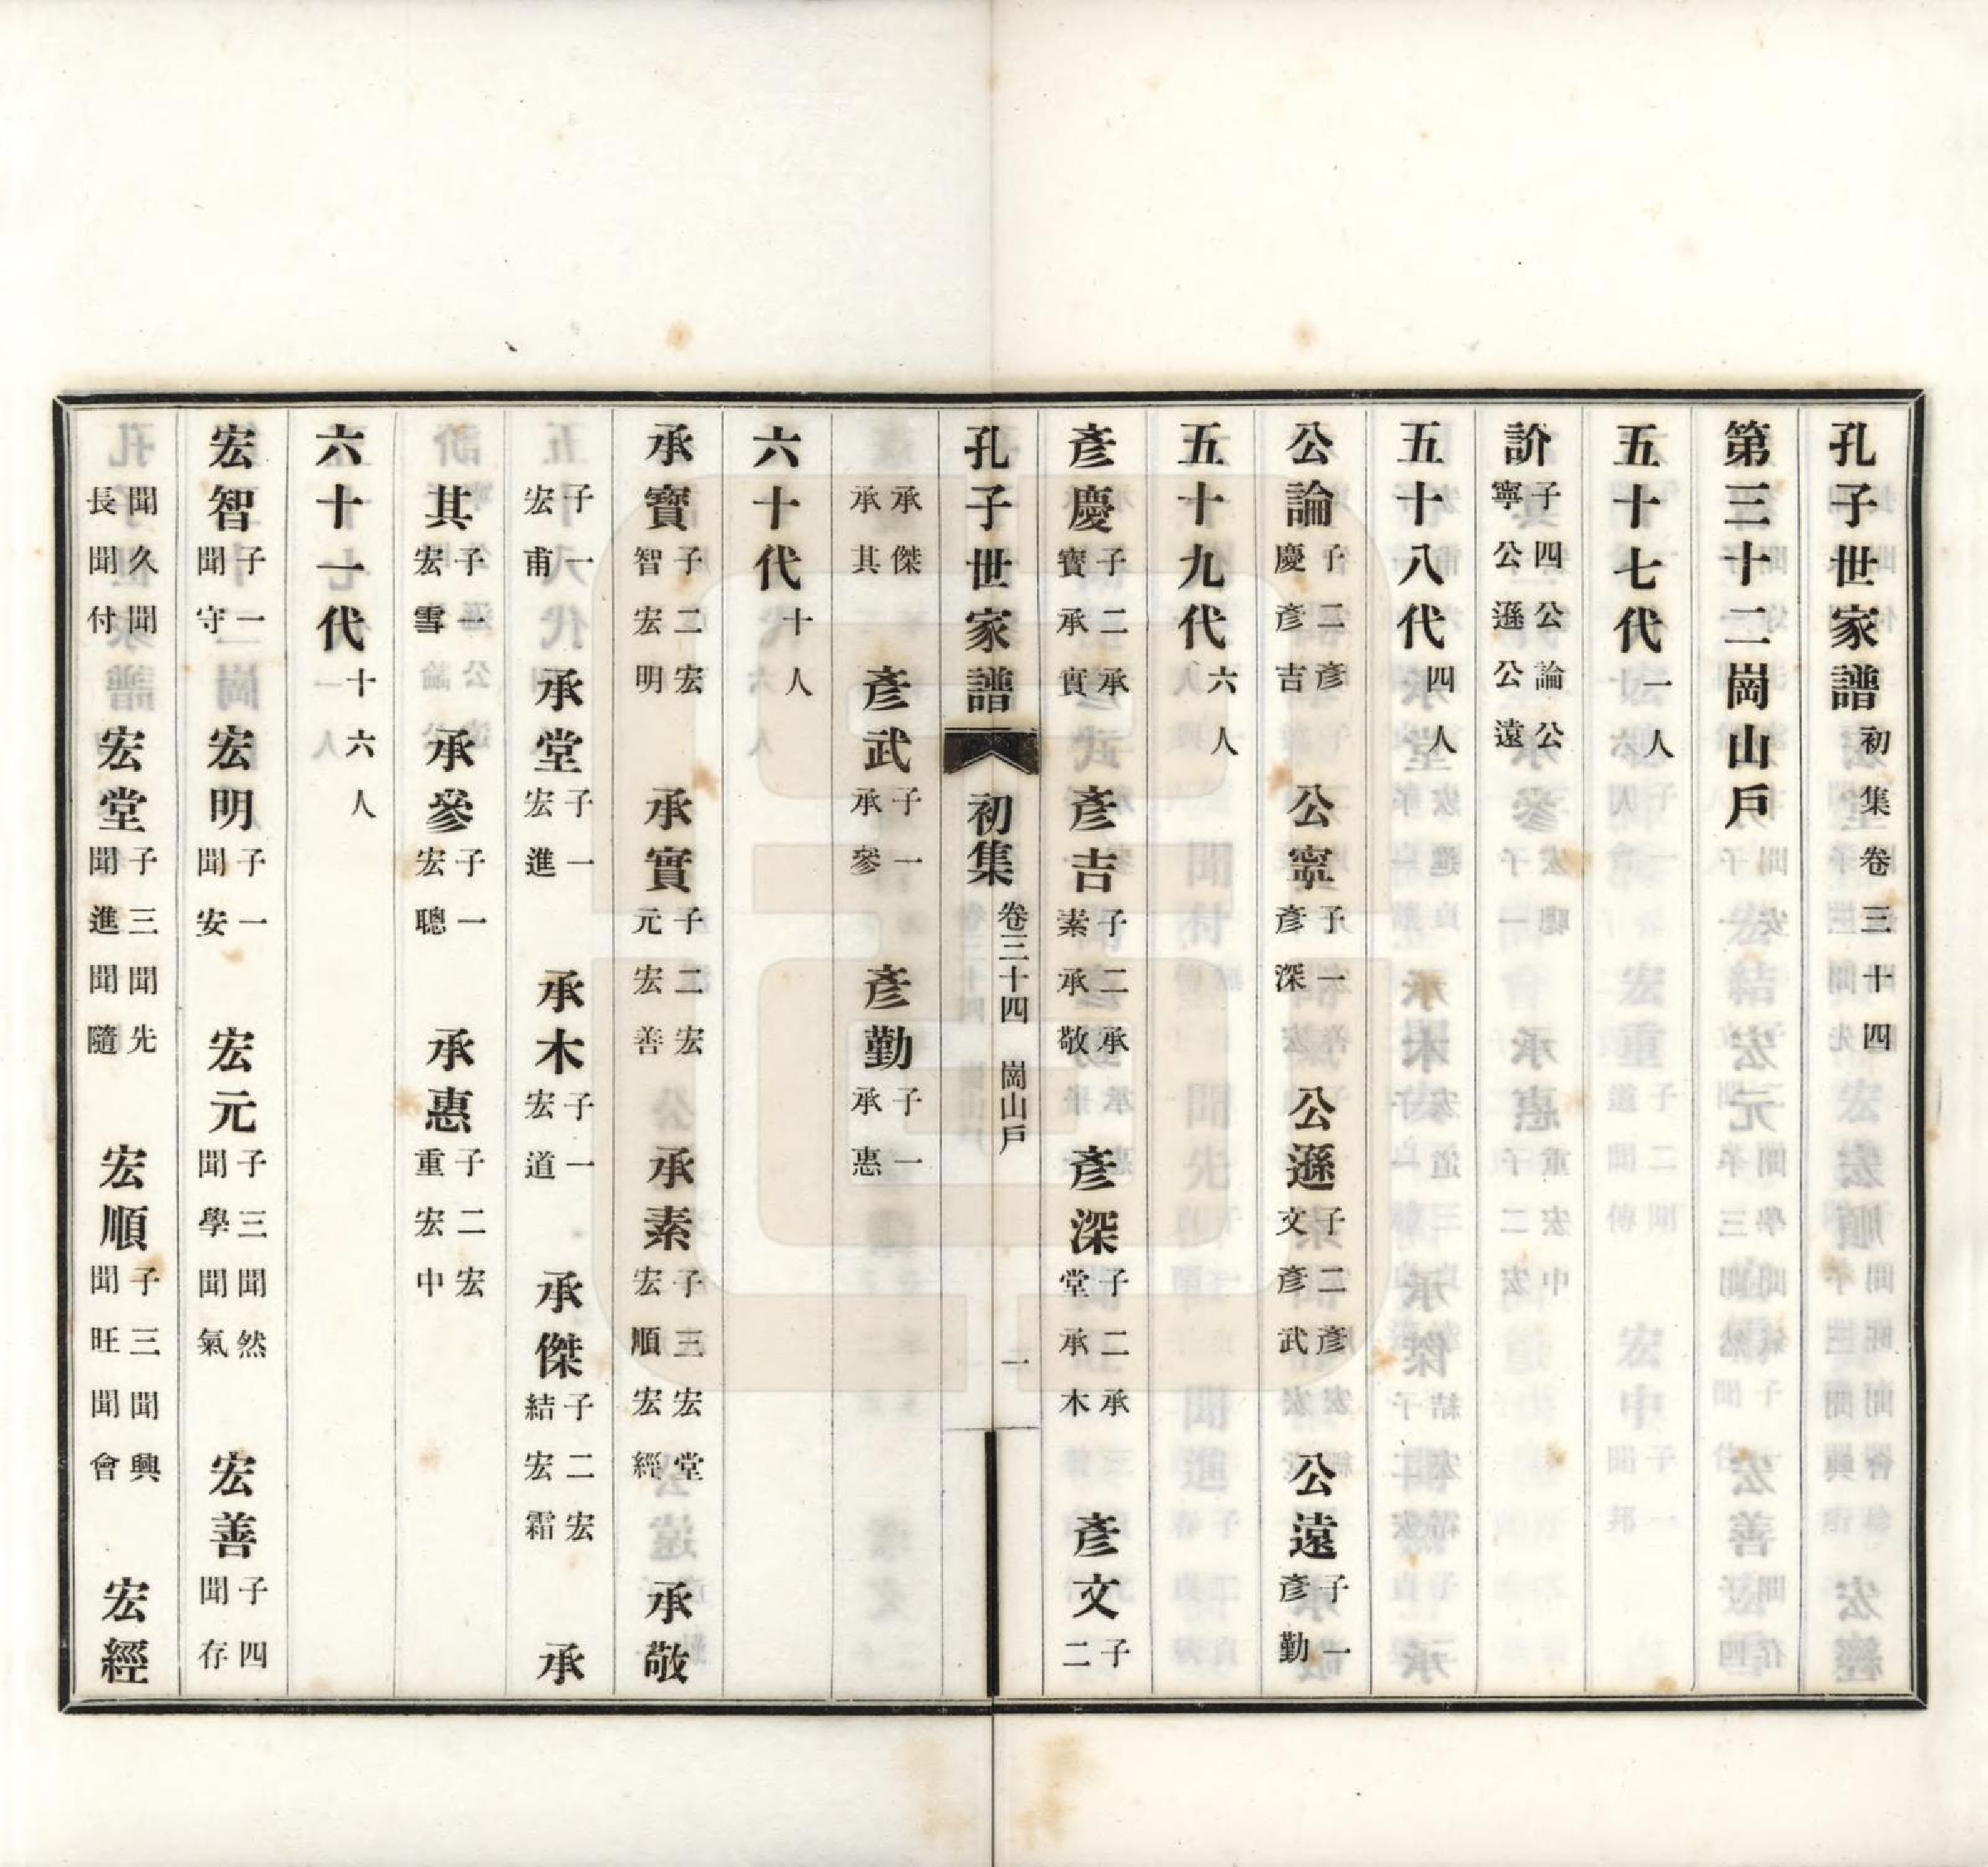 孔子世家譜初集卷三十四
第三十二崗山戶
五十七代一人
訢子四公論公寧公遜公遠
五十八代四人
公論子二彥慶彥吉　公寧子一彥深　公遜子二彥文彥武　公遠子一彥勤
五十九代六人
彥慶子二承寶承實　彥吉子二承素承敬　彥深子二承堂承木　彥文子二
孔子世家譜　初集　卷三十四　崗山戶　一
承傑承其　彥武子一承參　彥勤子一承惠
六十代十人
承寶子二宏智宏明　承實子二宏元宏善　承素子三宏堂宏順宏經　承敬
子一宏甫　承堂子一宏進　承木子一宏道　承傑子二宏結宏霜　承
其子一宏雪　承參子一宏聰　承惠子二宏重宏中
六十一代十六人
宏智子一聞守　宏明子一聞安　宏元子三聞學聞然聞氣　宏善子四聞存
聞久聞長聞付　宏堂子三聞進聞先聞隨　宏順子三聞旺聞興聞會　宏經